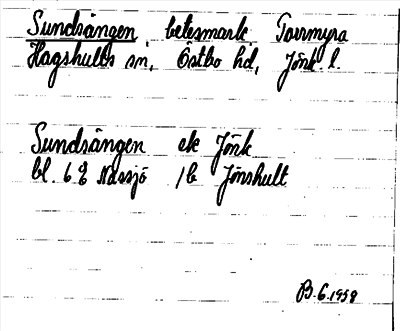 Sundsängen betesmark Torrmyra
Hagshults sn, Östbo hd, Jönk l.
Sundsängen ek Jönk
bl. 6 E Nässjö /b Jönshult
B. 6. 1958